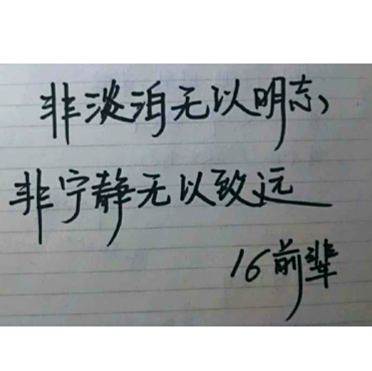 非淡泊无以明志，
非宁静无以致远
16前辈